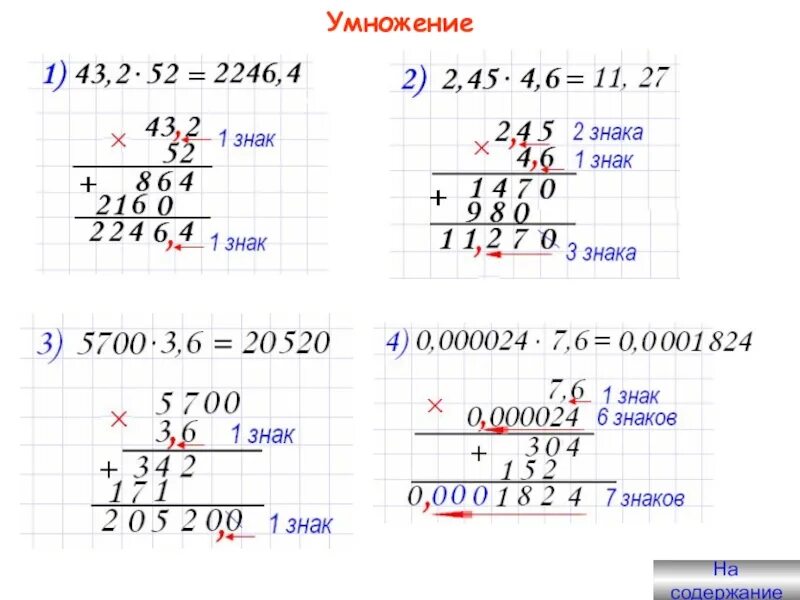 Умножение
1) 43,2 · 52 = 2246,4
43,2 1 знак
×
52
+ 864
2160
2246,4 1 знак
2) 2,45 · 4,6 = 11, 27
2,45 2 знака
×
4,6 1 знак
1470
+
980
11,270 3 знака
3) 5700 · 3,6 = 20520
5700
×
3,6 1 знак
+ 342
171
205200, 1 знак
4) 0,000024 · 7,6 = 0,0001824
7,6 1 знак
×
0,000024 6 знаков
+ 304
152
0,0001824 7 знаков
На
содержание